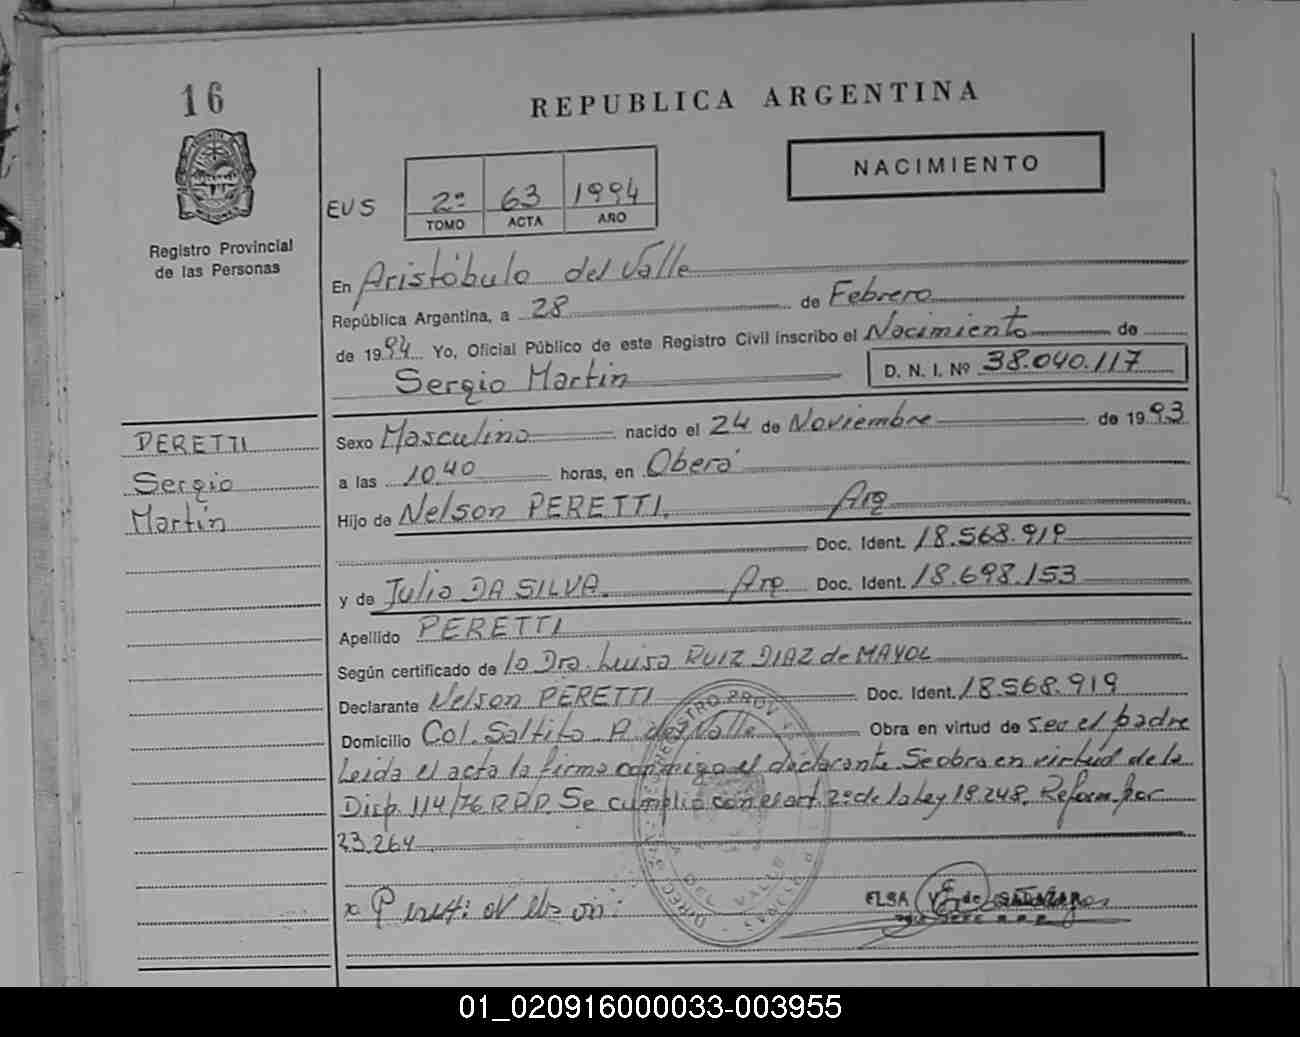 16
REPUBLICA ARGENTINA
NACIMIENTO
Registro Provincial
de las Personas
EUS
2º 63 1994
TOMO ACTA AÑO
En Aristóbulo del Valle
República Argentina, a 28 de Febrero
de 1994 Yo, Oficial Público de este Registro Civil inscribo el Nacimiento de
Sergio Martin D. N. I. Nº 38.040.117
PERETTI
Sergio
Martín
Sexo Masculino nacido el 24 de Noviembre de 1993
a las 10,40 horas, en Oberá
Hijo de Nelson PERETTI. Arg
Doc. Ident. 18.568.919
y de Julia DA SILVA. Arg Doc. Ident. 18.698.153
Apellido PERETTI
Según certificado de la Dra. Luisa RUIZ DIAZ de MAYOL
Declarante Nelson PERETTI Doc. Ident. 18.568.919
Domicilio Col. Saltito A. del Valle Obra en virtud de ser el padre
Leida el acta la firma conmigo el declarante. Se obra en virtud de la
Disp. 114/76 R.P.P. Se cumplió con el art. 2º de la Ley 18.248. Reform. por
23.264
x Peretti Nelson
ELSA
DEL VALLE
01_020916000033-003955